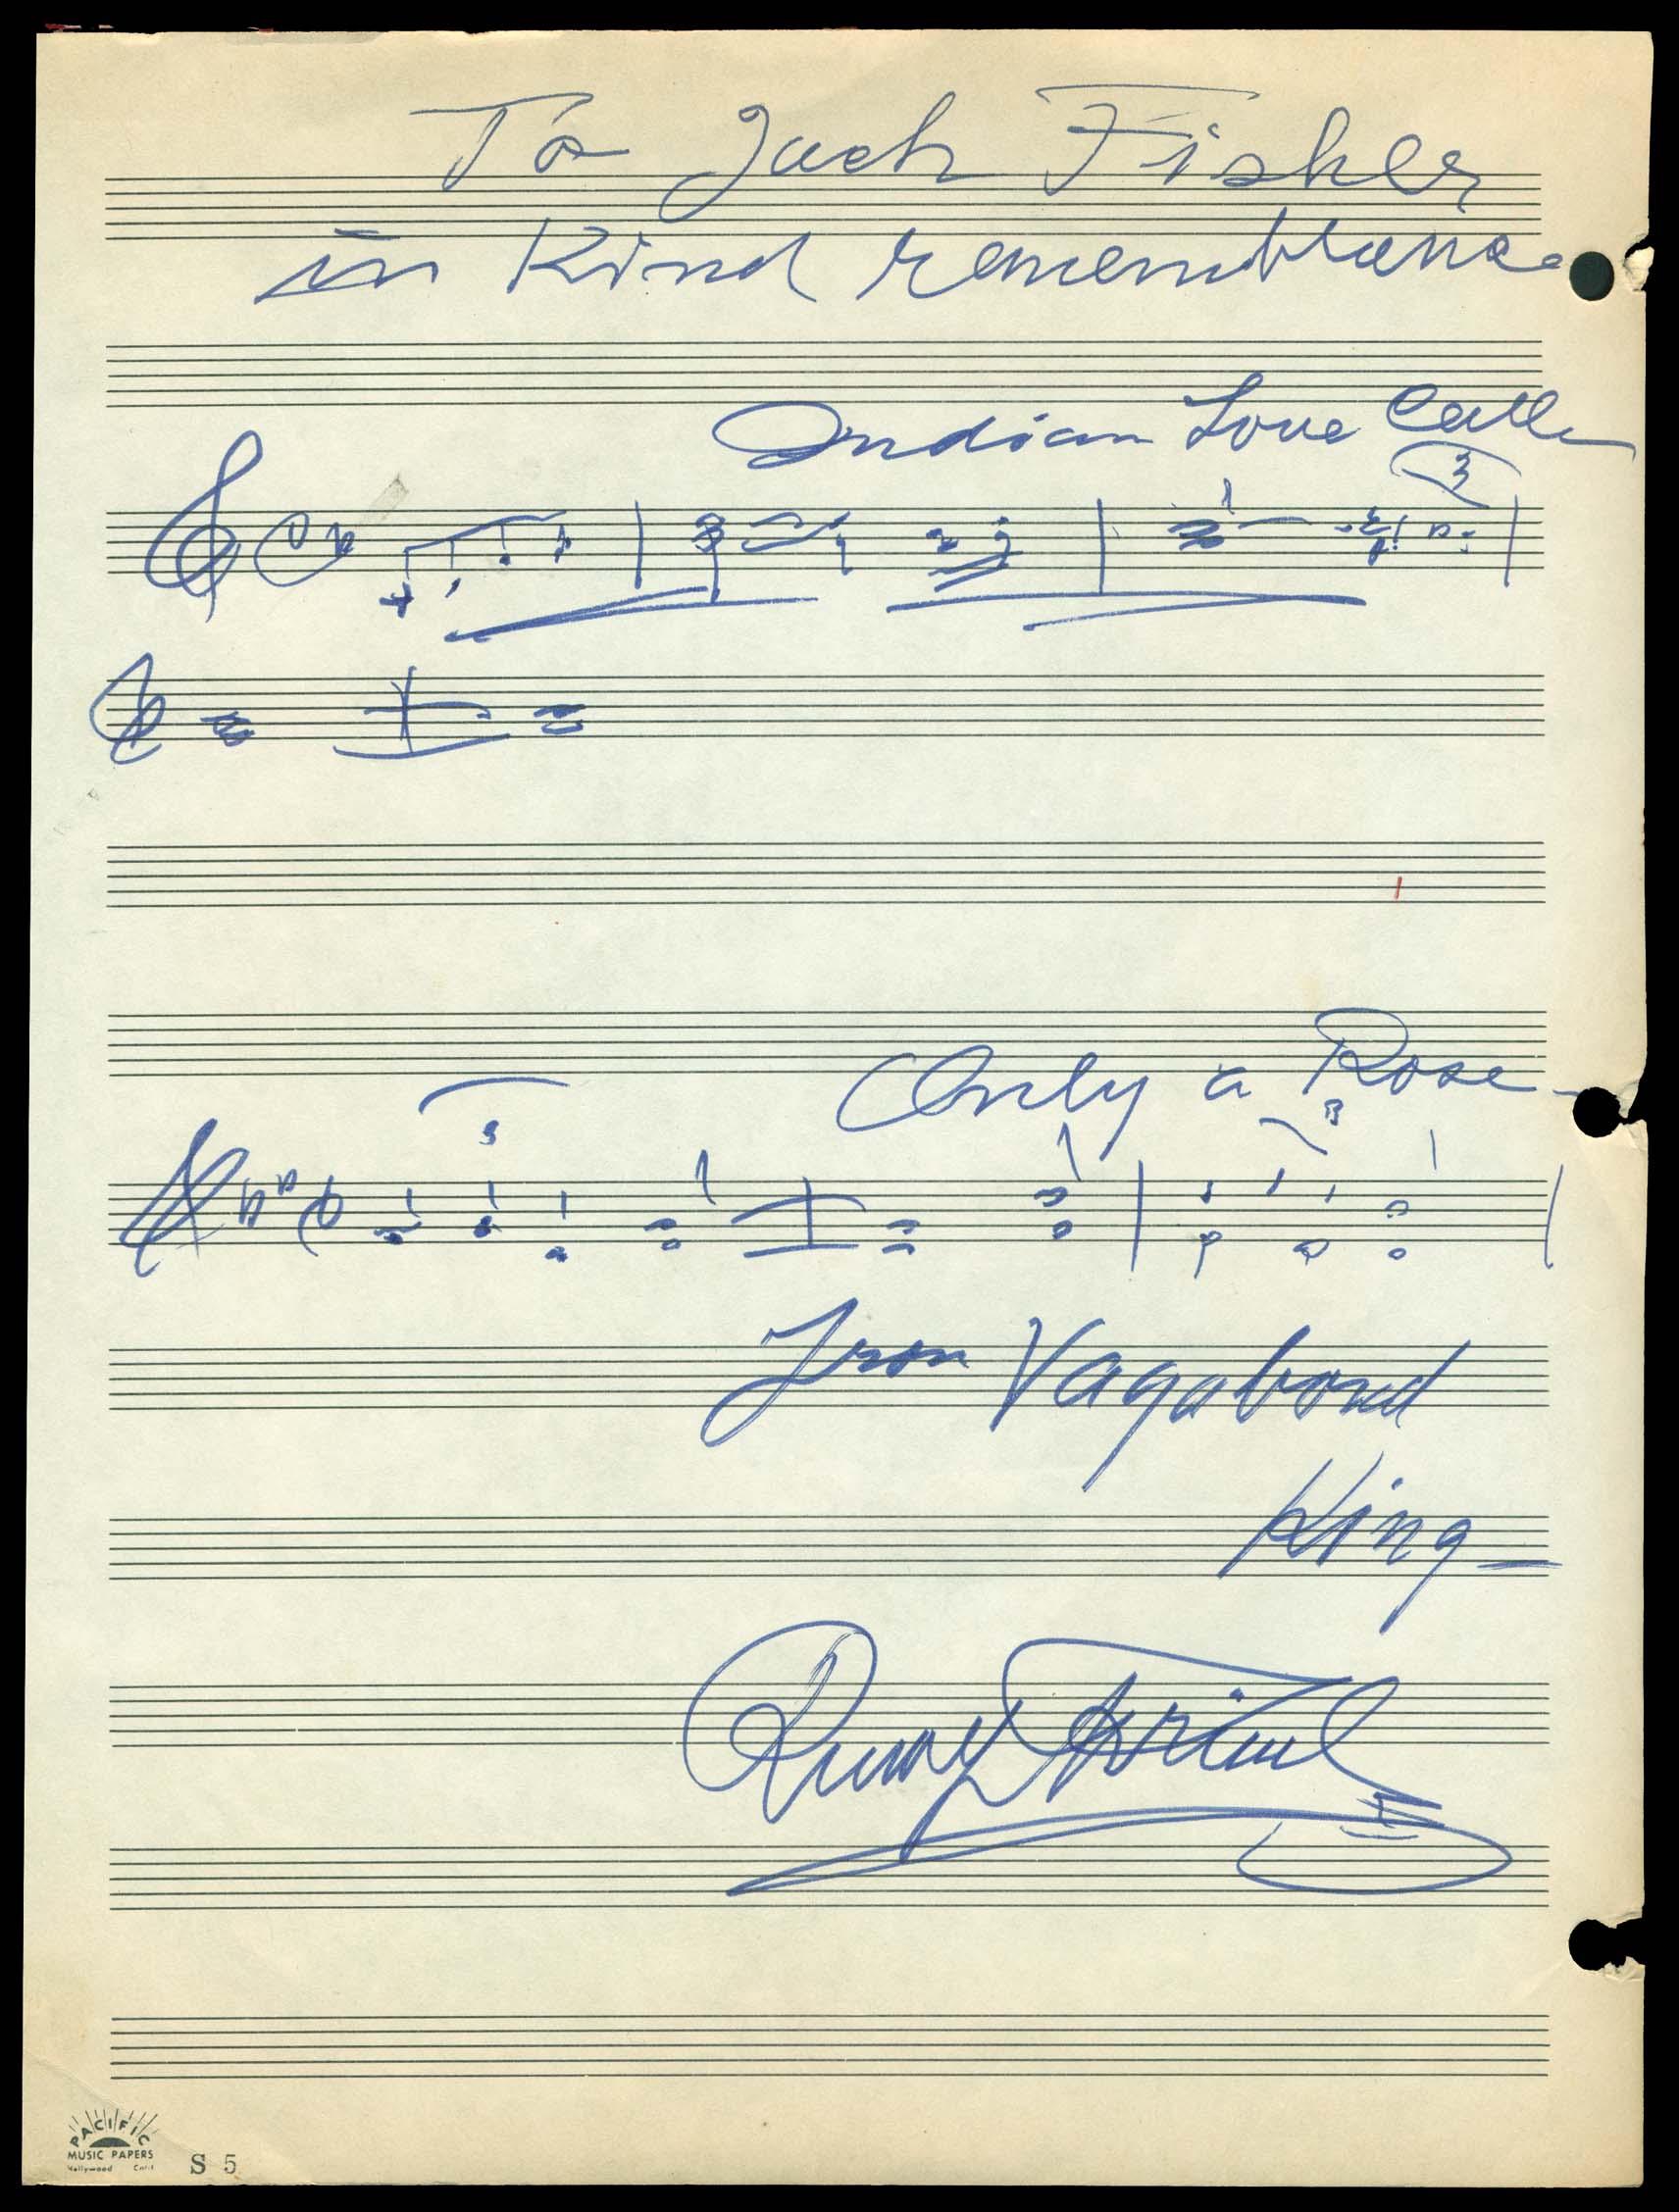 To Jack Fishler
in Kind remembrance
Indian Love Call
3
Only a Rose
3
3
from Vagabond
King
Rudolf Friml
PACIFIC
MUSIC PAPERS
Hollywood Calif
S 5